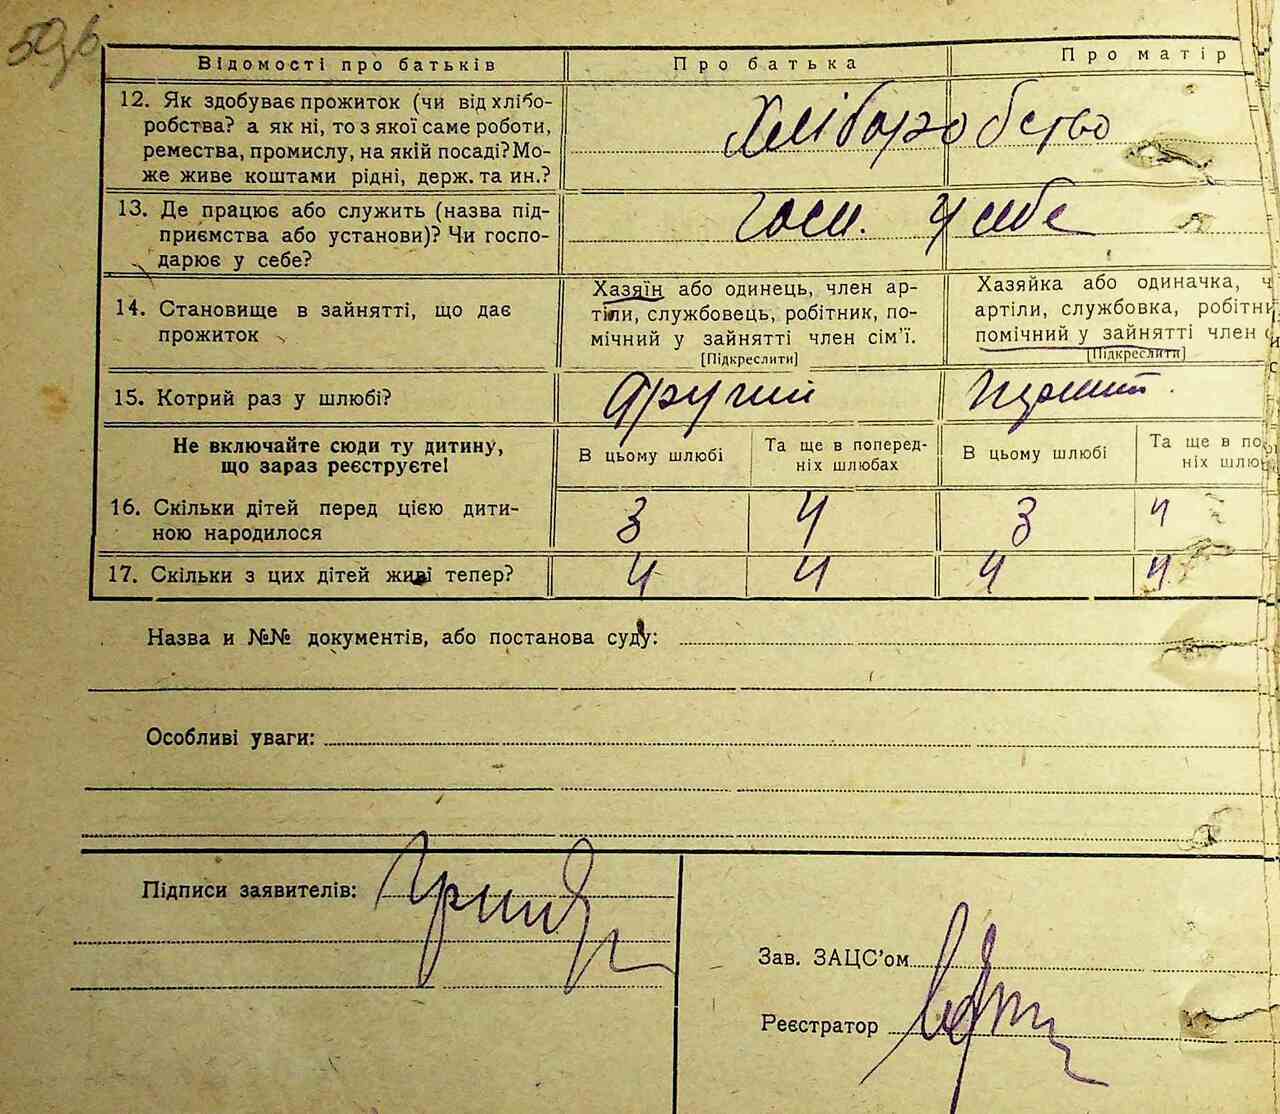 50зв
Відомості про батьків Про батька Про матір
12. Як здобуває прожиток (чи від хлібо-
робства? а як ні, то з якої саме роботи,
ремества, промислу, на якій посаді? Мо-
же живе коштами рідні, держ. та ин.?
Хліборобство
13. Де працює або служить (назва під-
приємства або установи)? Чи госпо-
дарює у себе?
Госп. у себе
14. Становище в зайнятті, що дає
прожиток
Хазяїн або одинець, член ар-
тіли, службовець, робітник, по-
мічний у зайнятті член сім'ї.
[Підкреслити]
Хазяйка або одиначка, ч
артіли, службовка, робітни
помічний у зайнятті член
[Підкреслити]
15. Котрий раз у шлюбі?
Другий
Не включайте сюди ту дитину,
що зараз реєструєте!
В цьому шлюбі
Та ще в поперед-
ніх шлюбах
В цьому шлюбі
Та ще в по
ніх шлю
16. Скільки дітей перед цією дити-
ною народилося
3 4 3 4
17. Скільки з цих дітей живі тепер?
4 4 4 4
Назва и №№ документів, або постанова суду:
Особливі уваги:
Підписи заявителів:
Зав. ЗАЦС'ом
Реєстратор